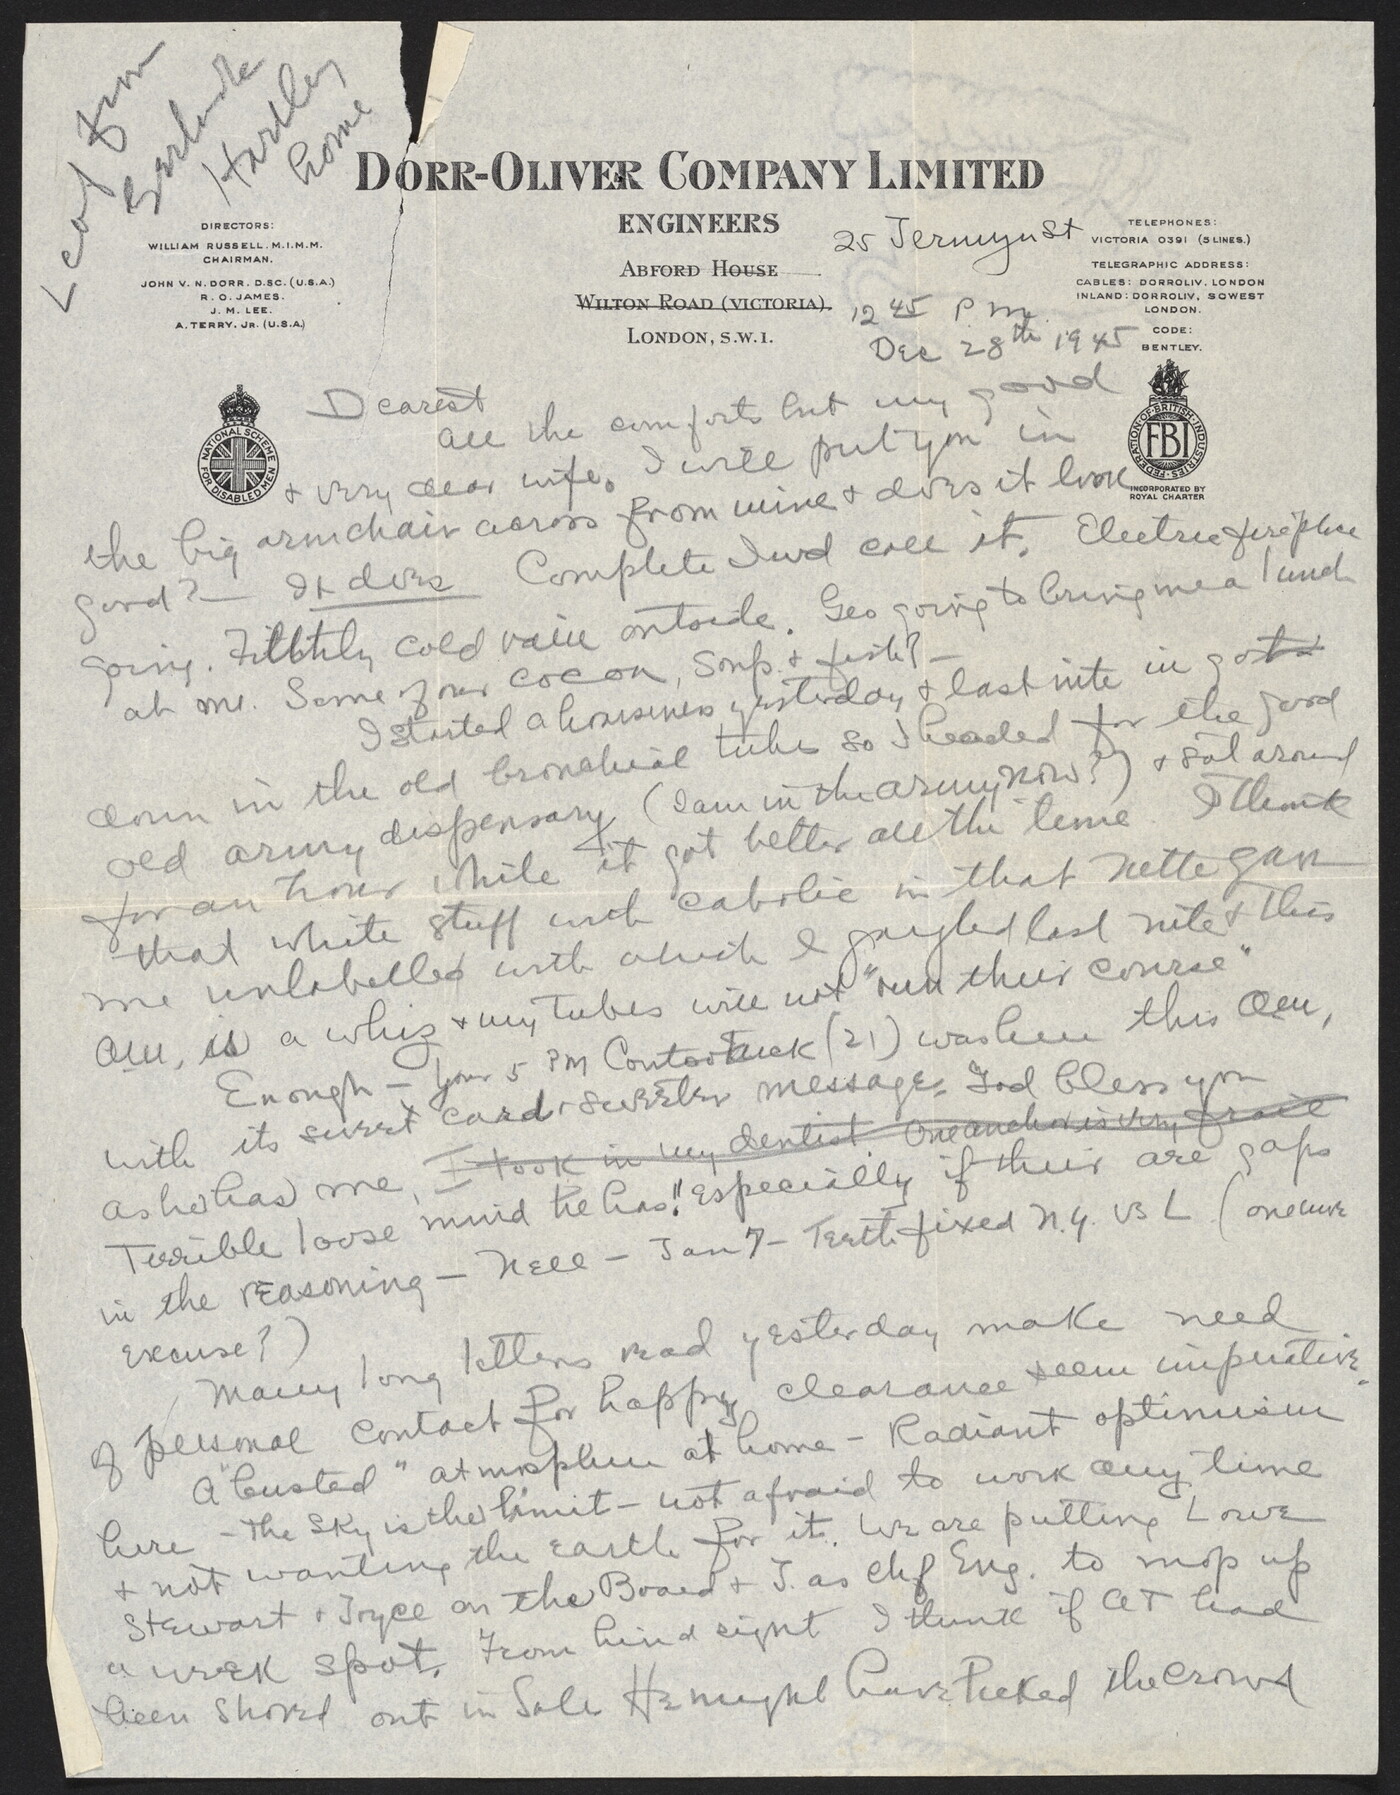 Leaf from
Gertrude
Hartley
home
DORR-OLIVER COMPANY LIMITED
ENGINEERS
ABFORD HOUSE
WILTON ROAD (VICTORIA).
LONDON, S.W.1.
DIRECTORS:
WILLIAM RUSSELL. M.I.M.M.
CHAIRMAN.
JOHN V. N. DORR. D.SC. (U.S.A.)
R. O. JAMES.
J. M. LEE.
A. TERRY, JR. (U.S.A.)
TELEPHONES:
VICTORIA 0391 (5 LINES.)
TELEGRAPHIC ADDRESS:
CABLES: DORROLIV. LONDON
INLAND: DORROLIV, SOWEST
LONDON.
CODE:
BENTLEY.
25 Jermyn St
12 45 P m
Dec 28th 1945
NATIONAL SCHEME FOR DISABLED MEN
FEDERATION·OF·BRITISH·INDUSTRIES
FBI
INCORPORATED BY
ROYAL CHARTER
Dearest
all the comforts but my good
& very dear wife. I will put you in
the big armchair across from mine & does it look
good? — It does Complete I wd call it. Electric fireplace
going. Filthily cold rain outside. Geo going to bring me a lunch
at one. Some of our cocoa, Soup & fish? —
I started a hoarseness yesterday & last nite in got
down in the old bronchial tubes so I headed for the good
old army dispensary (I am in the army now?) & sat around
for an hour while it got better all the time. I think
that white stuff with cabolic in that Nette gave
me unlabelled with which I gargled last nite & this
am, is a whiz & my tubes will not "run their course"
Enough — Your 5 PM (21) was here this am,
with its sweet card & sweeter message. God bless you
as he has me. I took in my dentist One anchor is very frail
Terrible loose mind he has! Especially if their are gaps
in the reasoning — Nell — Jan 7 — Teeth fixed N.Y. vs L (one
excuse?)
Many long letters read yesterday make need
of personal contact for happy clearance seem imperative.
A "busted" atmosphere at home — Radiant optimism
here — The sky is the limit — not afraid to work any time
& not wanting the earth for it. We are putting Lowe
Stewart & Joyce on the Board & J. as chf Eng. to mop up
a weak spot. From hind sight I think if AT had
been shoved out in Sale He might have licked the crowd